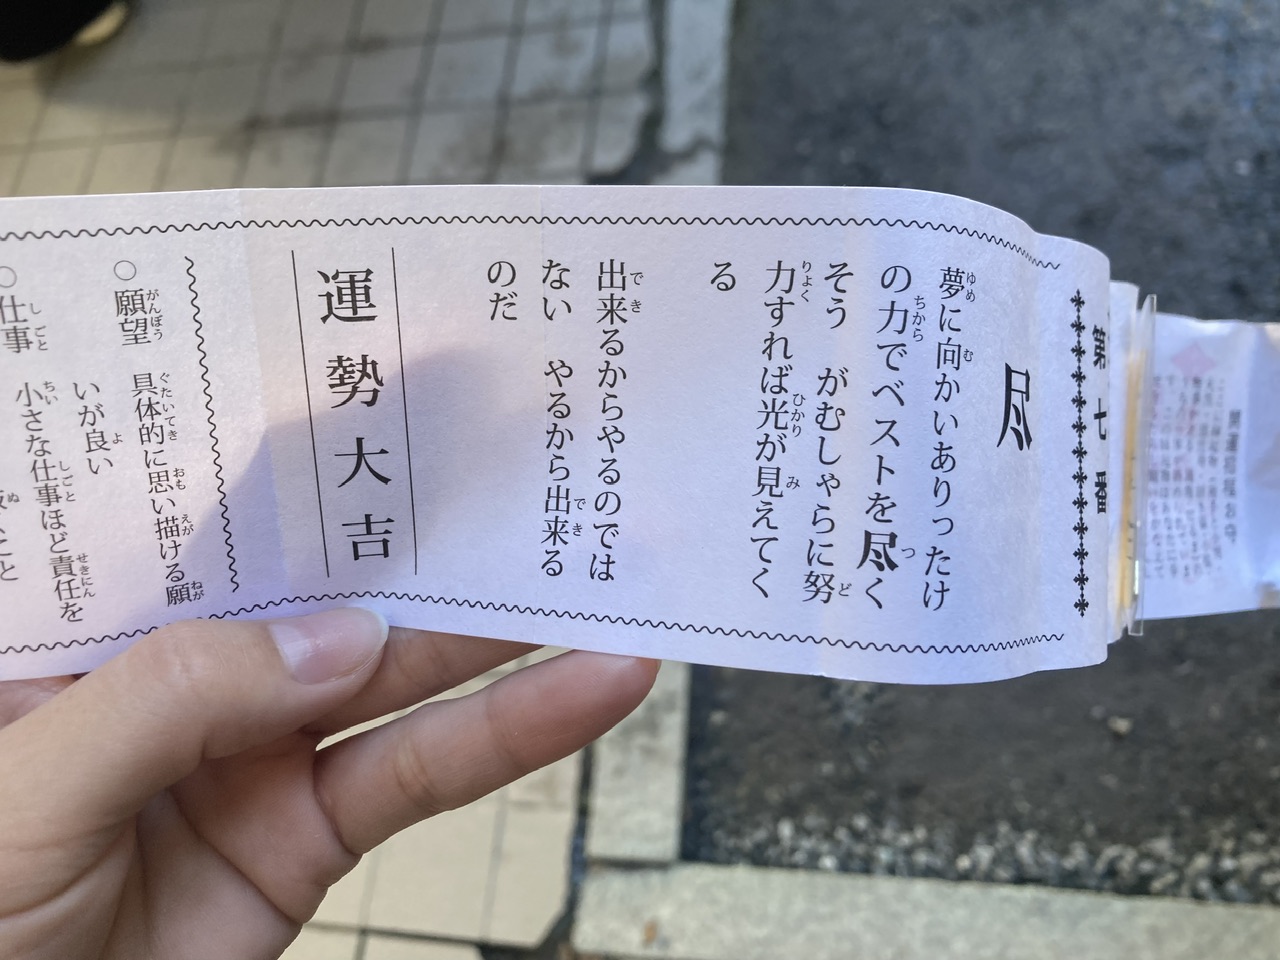 第七番
尽
夢に向かいありったけ
の力でベストを尽く
そう がむしゃらに努
力すれば光が見えてく
る
出来るからやるのでは
ない やるから出来る
のだ
運勢大吉
○願望 具体的に思い描ける願
いが良い
○仕事 小さな仕事ほど責任を
開運招福お守